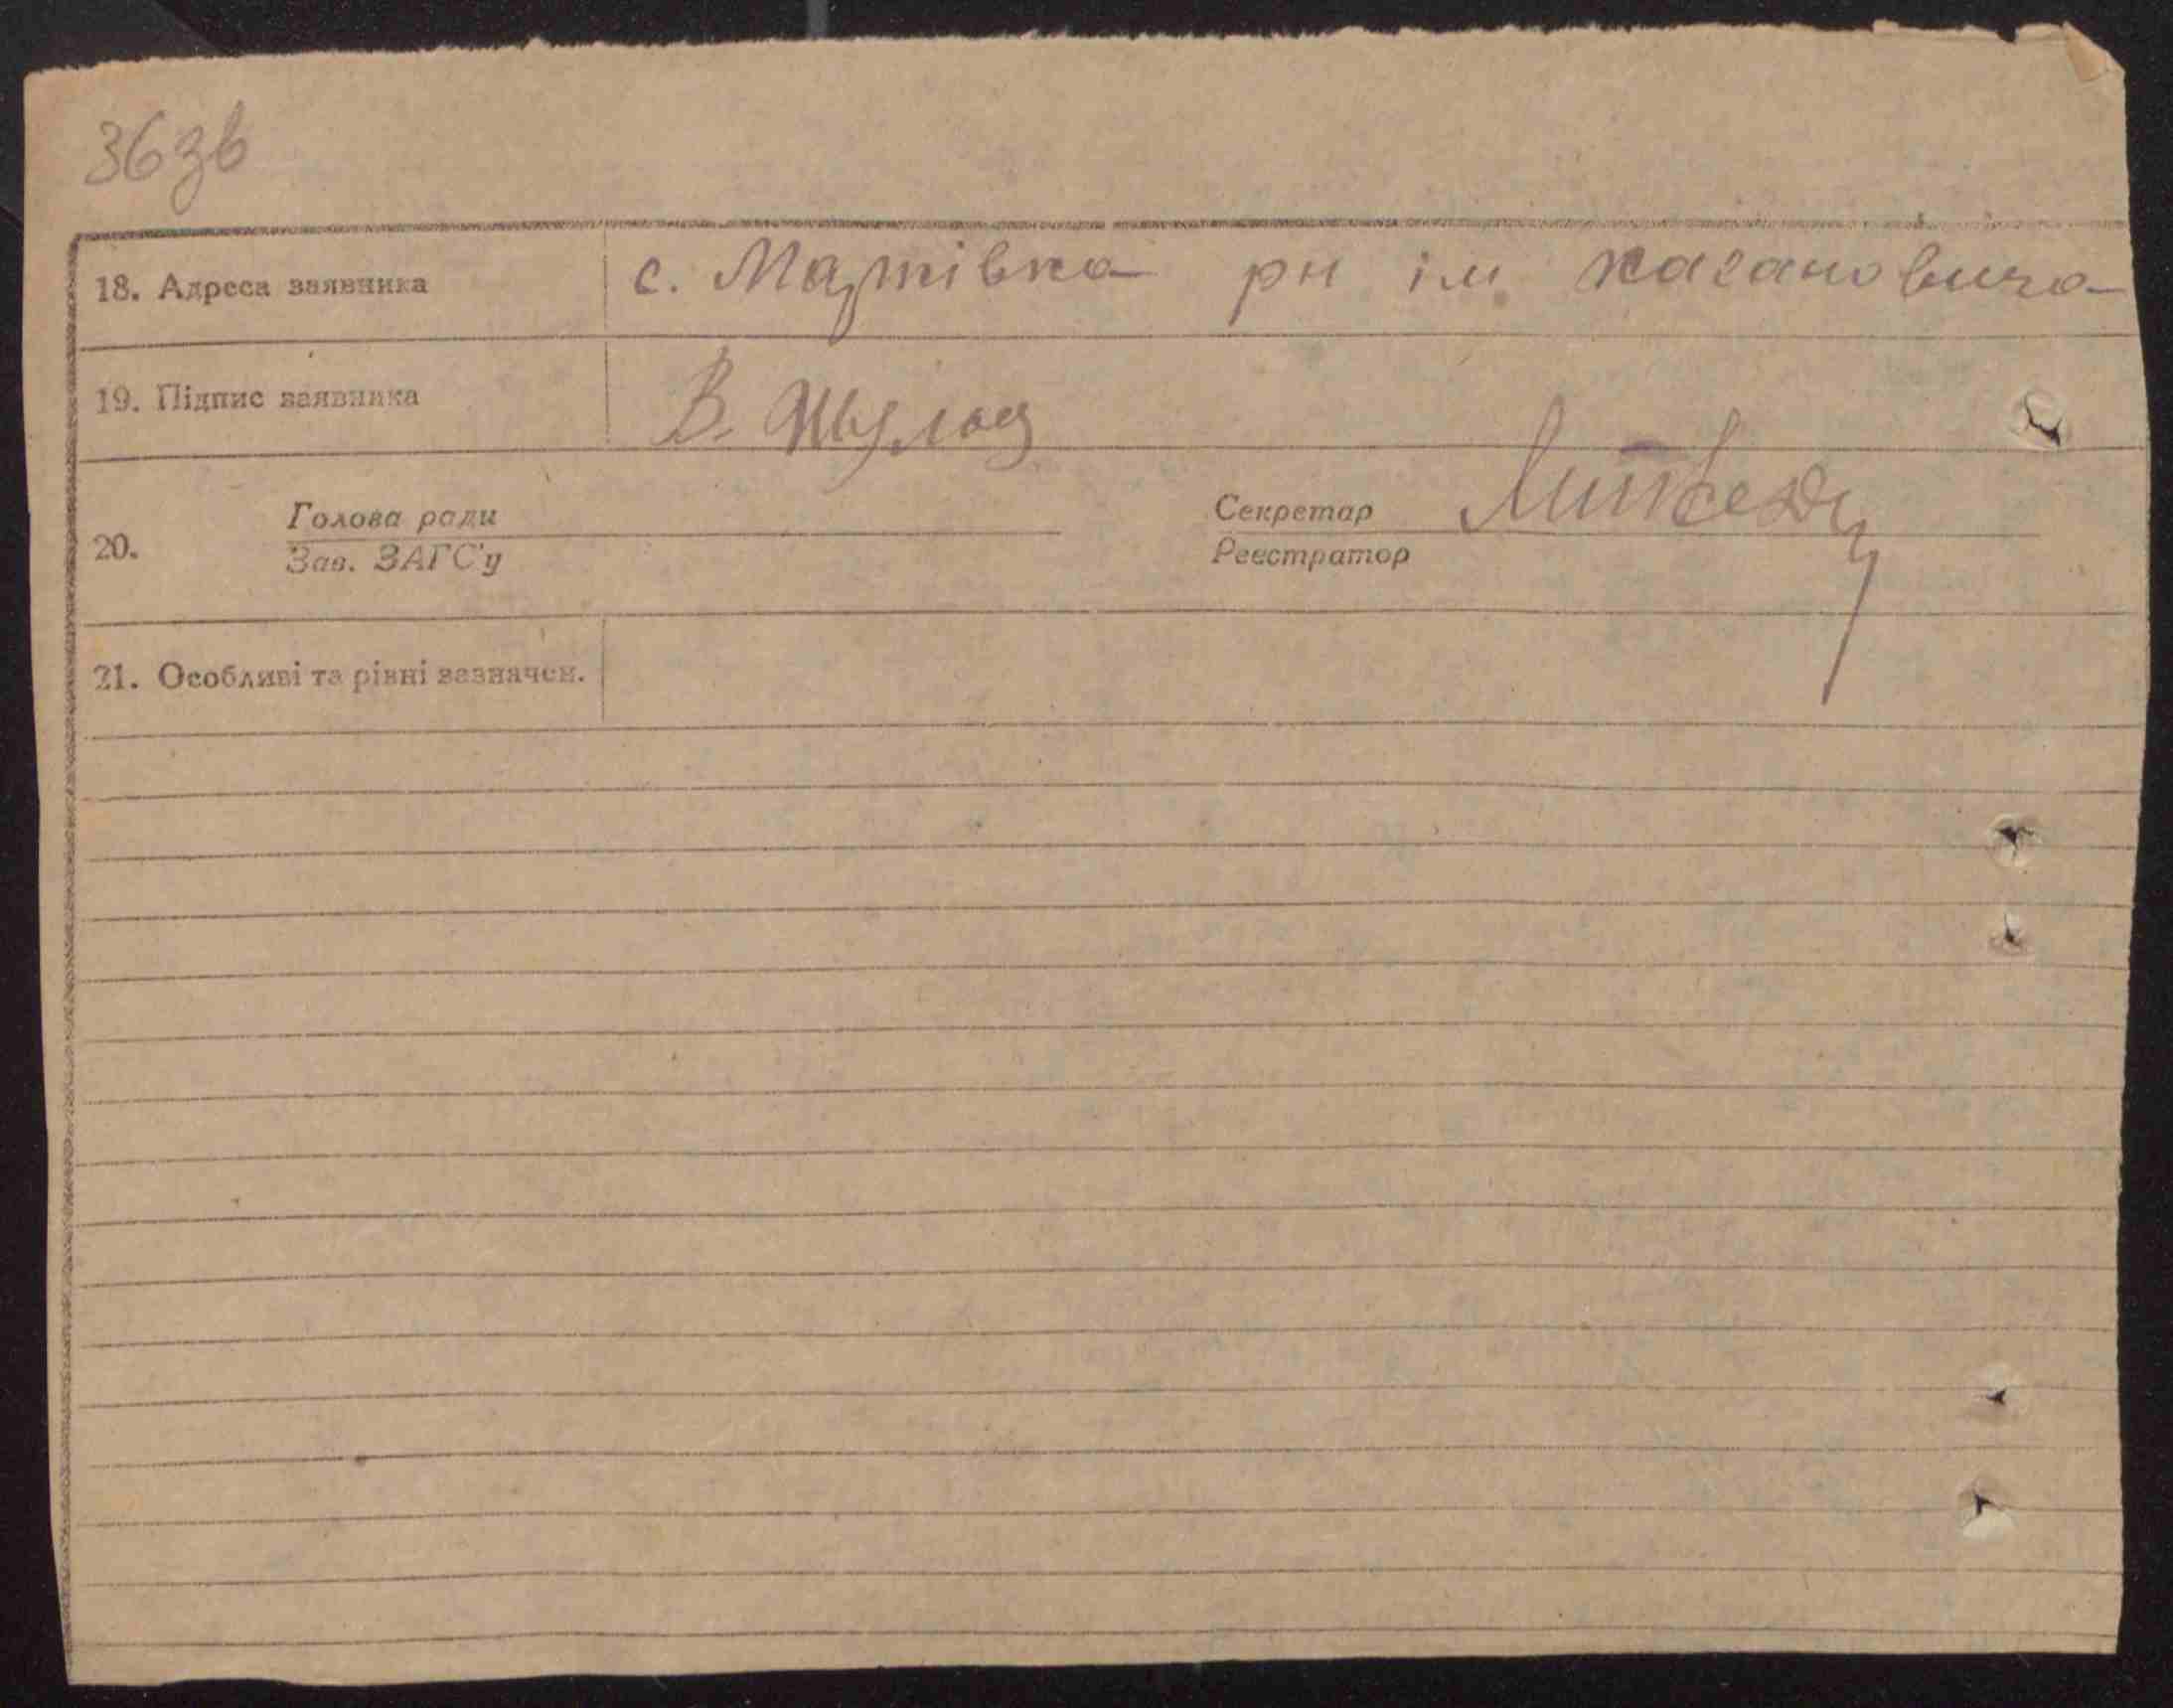 36зв
18. Адреса заявника с. Мартівка рн ім. Кагановича
19. Підпис заявника В. Шульц
20. Голова ради Секретар
Зав. ЗАГС'у Реєстратор
21. Особливі та рівні зазначен.